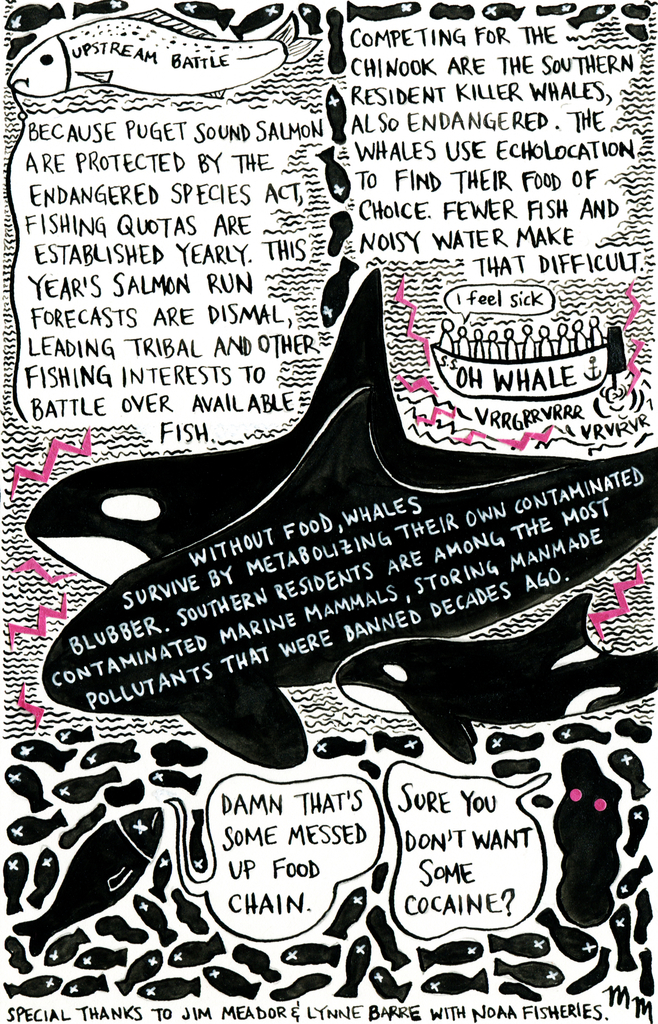 UPSTREAM BATTLE
BECAUSE PUGET SOUND SALMON
ARE PROTECTED BY THE
ENDANGERED SPECIES ACT,
FISHING QUOTAS ARE
ESTABLISHED YEARLY. THIS
YEAR'S SALMON RUN
FORECASTS ARE DISMAL,
LEADING TRIBAL AND OTHER
FISHING INTERESTS TO
BATTLE OVER AVAILABLE
FISH.
COMPETING FOR THE
CHINOOK ARE THE SOUTHERN
RESIDENT KILLER WHALES,
ALSO ENDANGERED. THE
WHALES USE ECHOLOCATION
TO FIND THEIR FOOD OF
CHOICE. FEWER FISH AND
NOISY WATER MAKE
THAT DIFFICULT.
I feel sick
S.S. OH WHALE
VRRGRRVRRR
VRVRVR
WITHOUT FOOD, WHALES
SURVIVE BY METABOLIZING THEIR OWN CONTAMINATED
BLUBBER. SOUTHERN RESIDENTS ARE AMONG THE MOST
CONTAMINATED MARINE MAMMALS, STORING MANMADE
POLLUTANTS THAT WERE BANNED DECADES AGO.
DAMN THAT'S
SOME MESSED
UP FOOD
CHAIN.
SURE YOU
DON'T WANT
SOME
COCAINE?
MM
SPECIAL THANKS TO JIM MEADOR & LYNNE BARRE WITH NOAA FISHERIES.